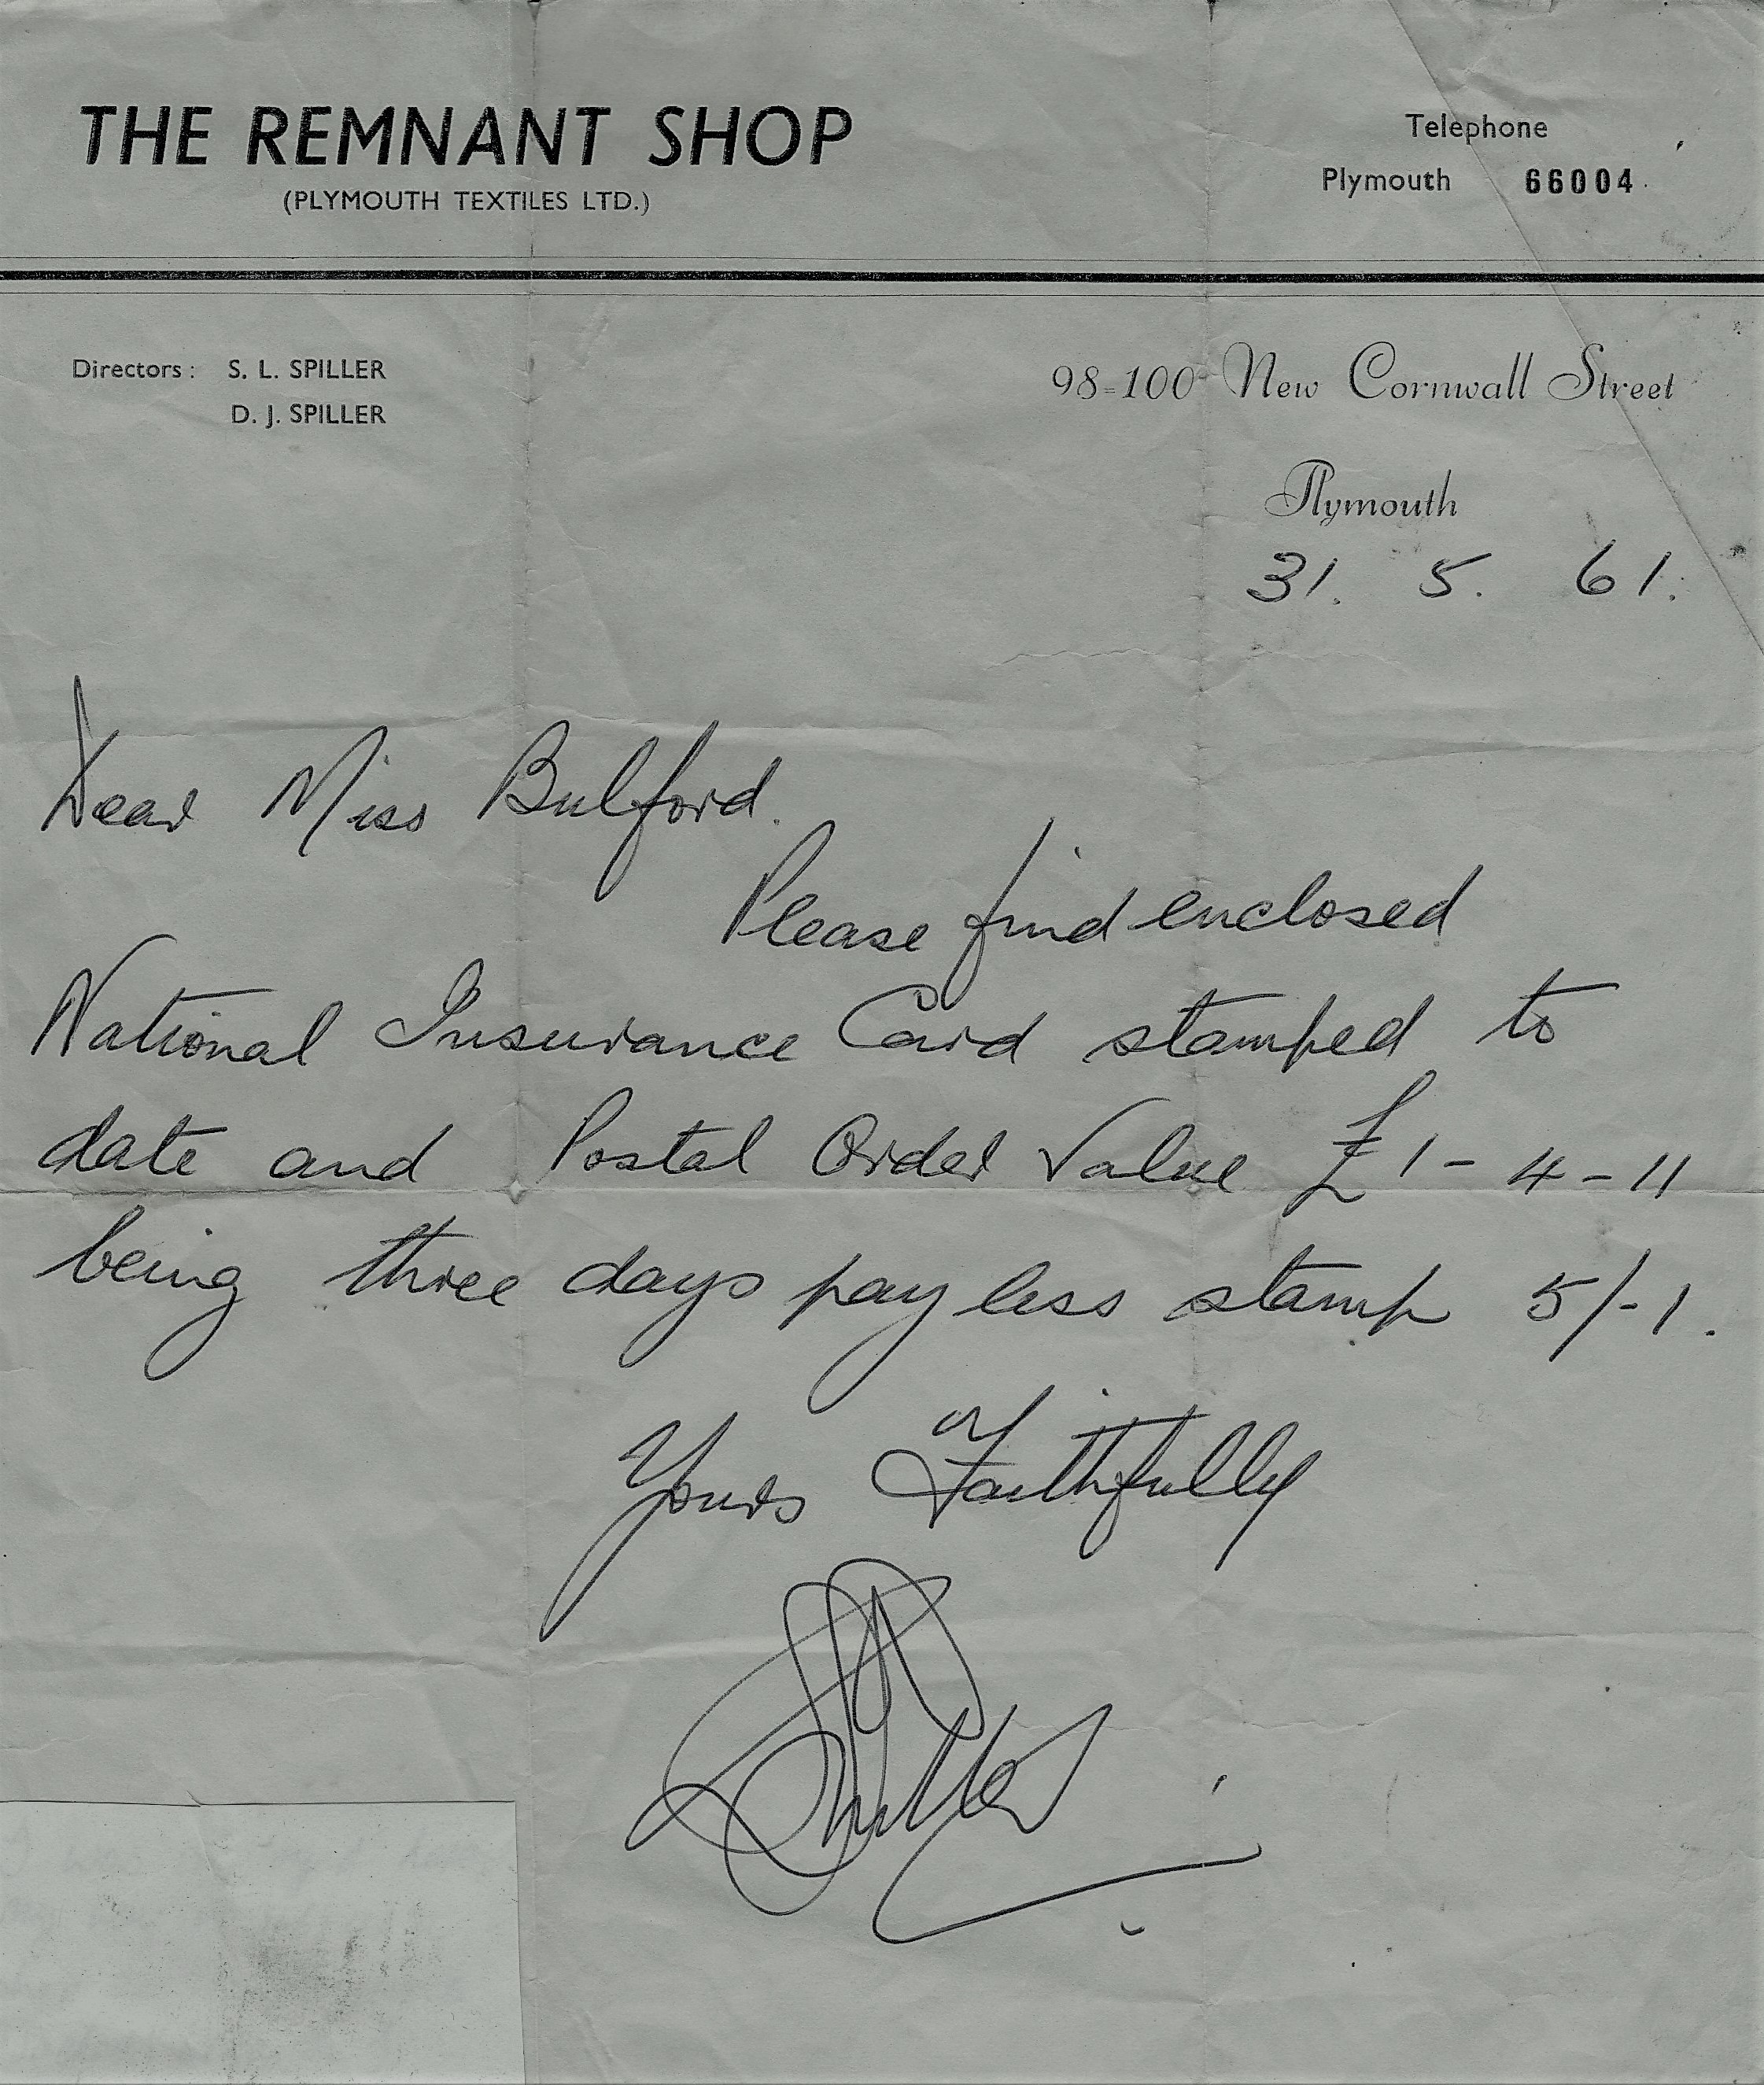 THE REMNANT SHOP
(PLYMOUTH TEXTILES LTD.)
Telephone
Plymouth 66004
Directors: S. L. SPILLER
D. J. SPILLER
98-100 New Cornwall Street
Plymouth
31. 5. 61.
Dear Miss Bulford.
Please find enclosed
National Insurance Card stamped to
date and Postal Order Value £1-4-11
being three days pay less stamp 5/-1.
Yours Faithfully